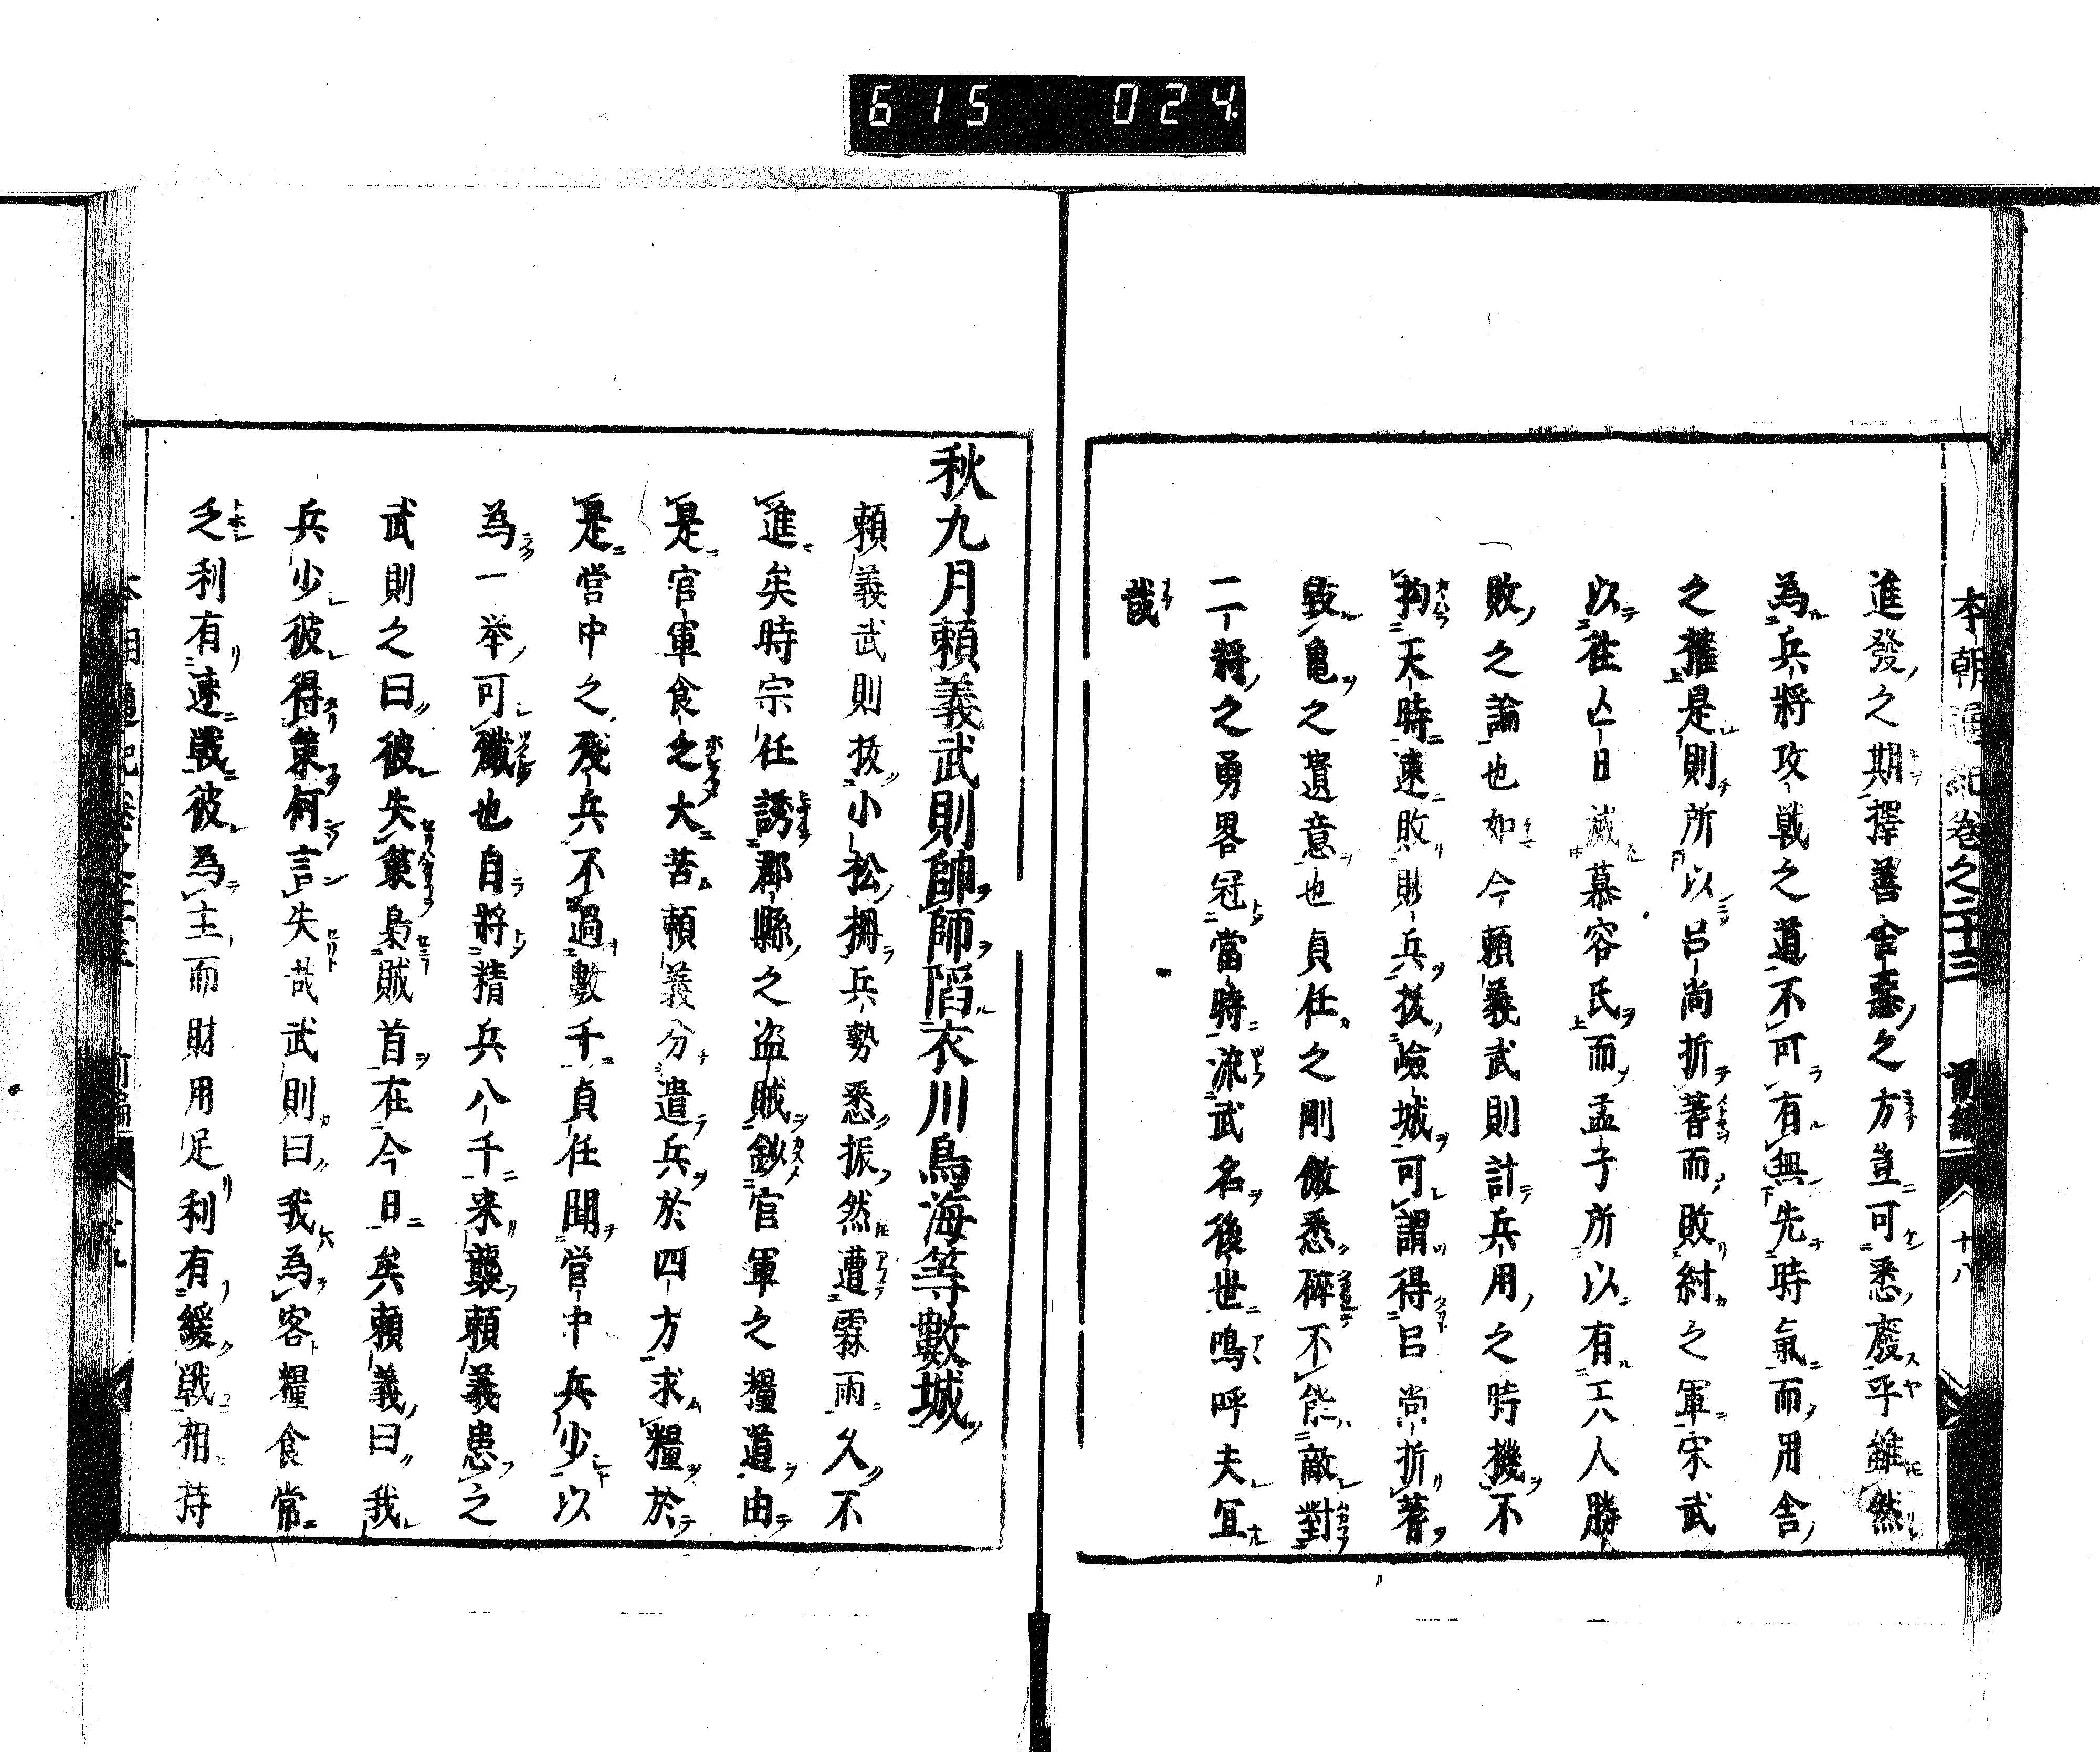 615 024
本朝通紀卷之二十三 前編 十八
進發之期擇善舍惡之方豈可悉廢乎雖然
為兵將攻戰之道不可有無先時氣而用舍
之權是則所以呂尚折蓍而敗紂之軍宋武
以往亡日滅慕容氏而孟子所以有天人勝
敗之論也如今頼義武則計兵用之時機不
拘天時速敗財兵拔嶮城可謂得呂尚折蓍
毀亀之遺意也貞任之剛傲悉碎不能敵對
二將之勇畧冠當時流武名後世嗚呼夫宜
哉
秋九月頼義武則帥師陷衣川鳥海等數城
頼義武則拔小松柵兵勢悉振然遭霖雨久不
進矣時宗任誘郡縣之盗賊鈔官軍之糧道由
是官軍食乏大苦頼義分遣兵於四方求糧於
是営中之殘兵不過數千貞任聞営中兵少以
為一举可殲也自將精兵八千来襲頼義患之
武則之曰彼失策梟賊首在今日矣頼義曰我
兵少彼得策何言失哉武則曰我為客糧食常
乏利有速戰彼為主而財用足利有緩戰相持